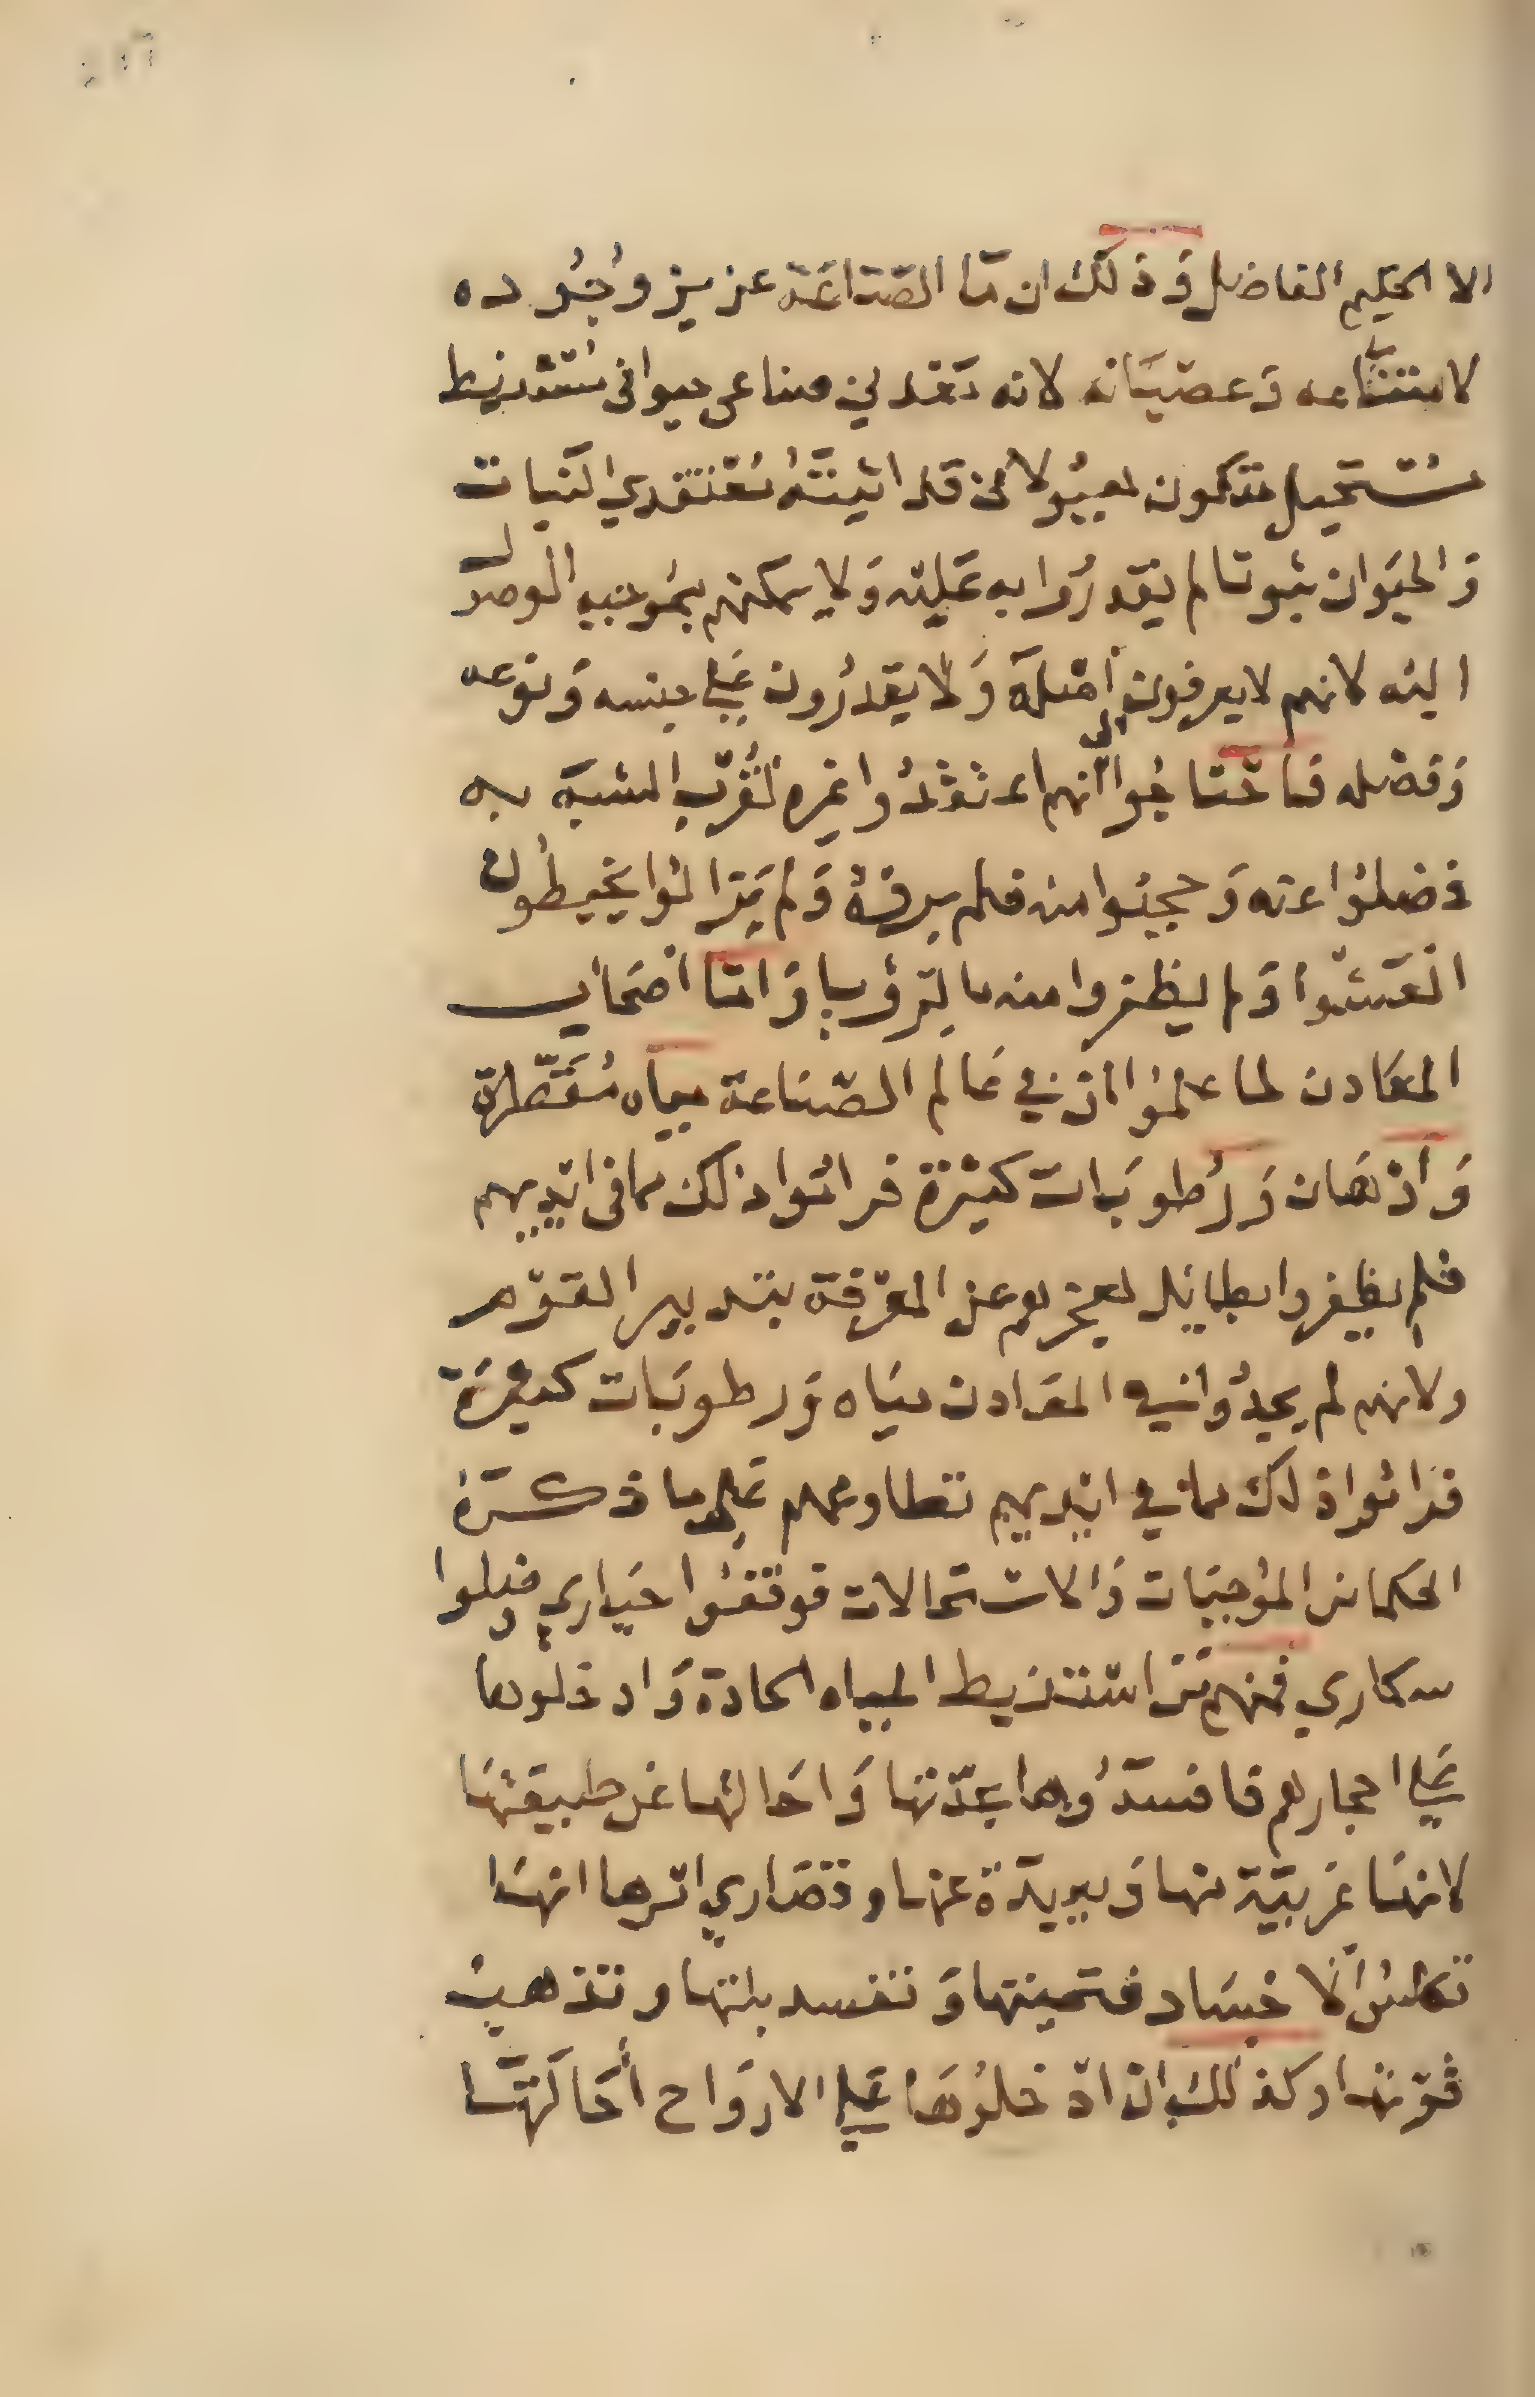 الا الحكيم الفاضل وَذلك ان ما الصّناعَة عزيز وُجُوده
لامتناعه وَعصيَانه لانه مَعْدني صناعي حيواني مُسْتنبط
مُسْتَحيل متكون لانى قد اثبتُّ مُعتقدي النّبات
وَالحيَوان ثبوتا لم يقدرُوا به عَليْه وَلا يمكنهم بمُوجبه الوصول
اليْه لانهم لا يعرفون اصْله وَلا يقدرُون عَلي جنسه وَنوعه
وَفصْله فاحتاجُوا الى انهم اعتقدُوا غيره لقُرْب المشبه به
فضلوُا عنه وَحجبُوا منه فلم وَلم يَزالوُا يخبطُون
العَشْوا وَلم يظفروا منه وَامّا اصْحَاب
المعَادن لما علموُا ان في عَالم الصّناعة مياه مُقَطّرة
وَادْهَان وَرُطوبَات كثيْرة فرامُوا ذلك مما في ايْديهم
فلم يظفروا بطايل لعجزهم عن المعْرفة بتدبير القوْم
ولانهم لم يجدُوا في المعَادن ميَاه وَرطوبَات كثيرَة
فرامُوا ذلك مما في ايْديهم تطاوعهم عَلي ما ذكرَهُ
الحكما من الموُجبَات وَالاسْتحالات فوقفُوا حيَاري وَ
سكاري فمنهم مَنْ اسْتنبط المياه الحادة وَادخلوها
عَلي احجارهم فافسدُوها بحدّتها وَاحَالتها عَن طبيعَتهَا
لانهَا غريبَة منها وَبعيدَة عنها وقصَاري اثرها انهَا
تكلسُ الاجسَاد وَتفسد بلتها وتذهبُ
قوّتها وكذلك ان ادْخلوُهَا عَلي الارْوَاح أحَالَتهَا